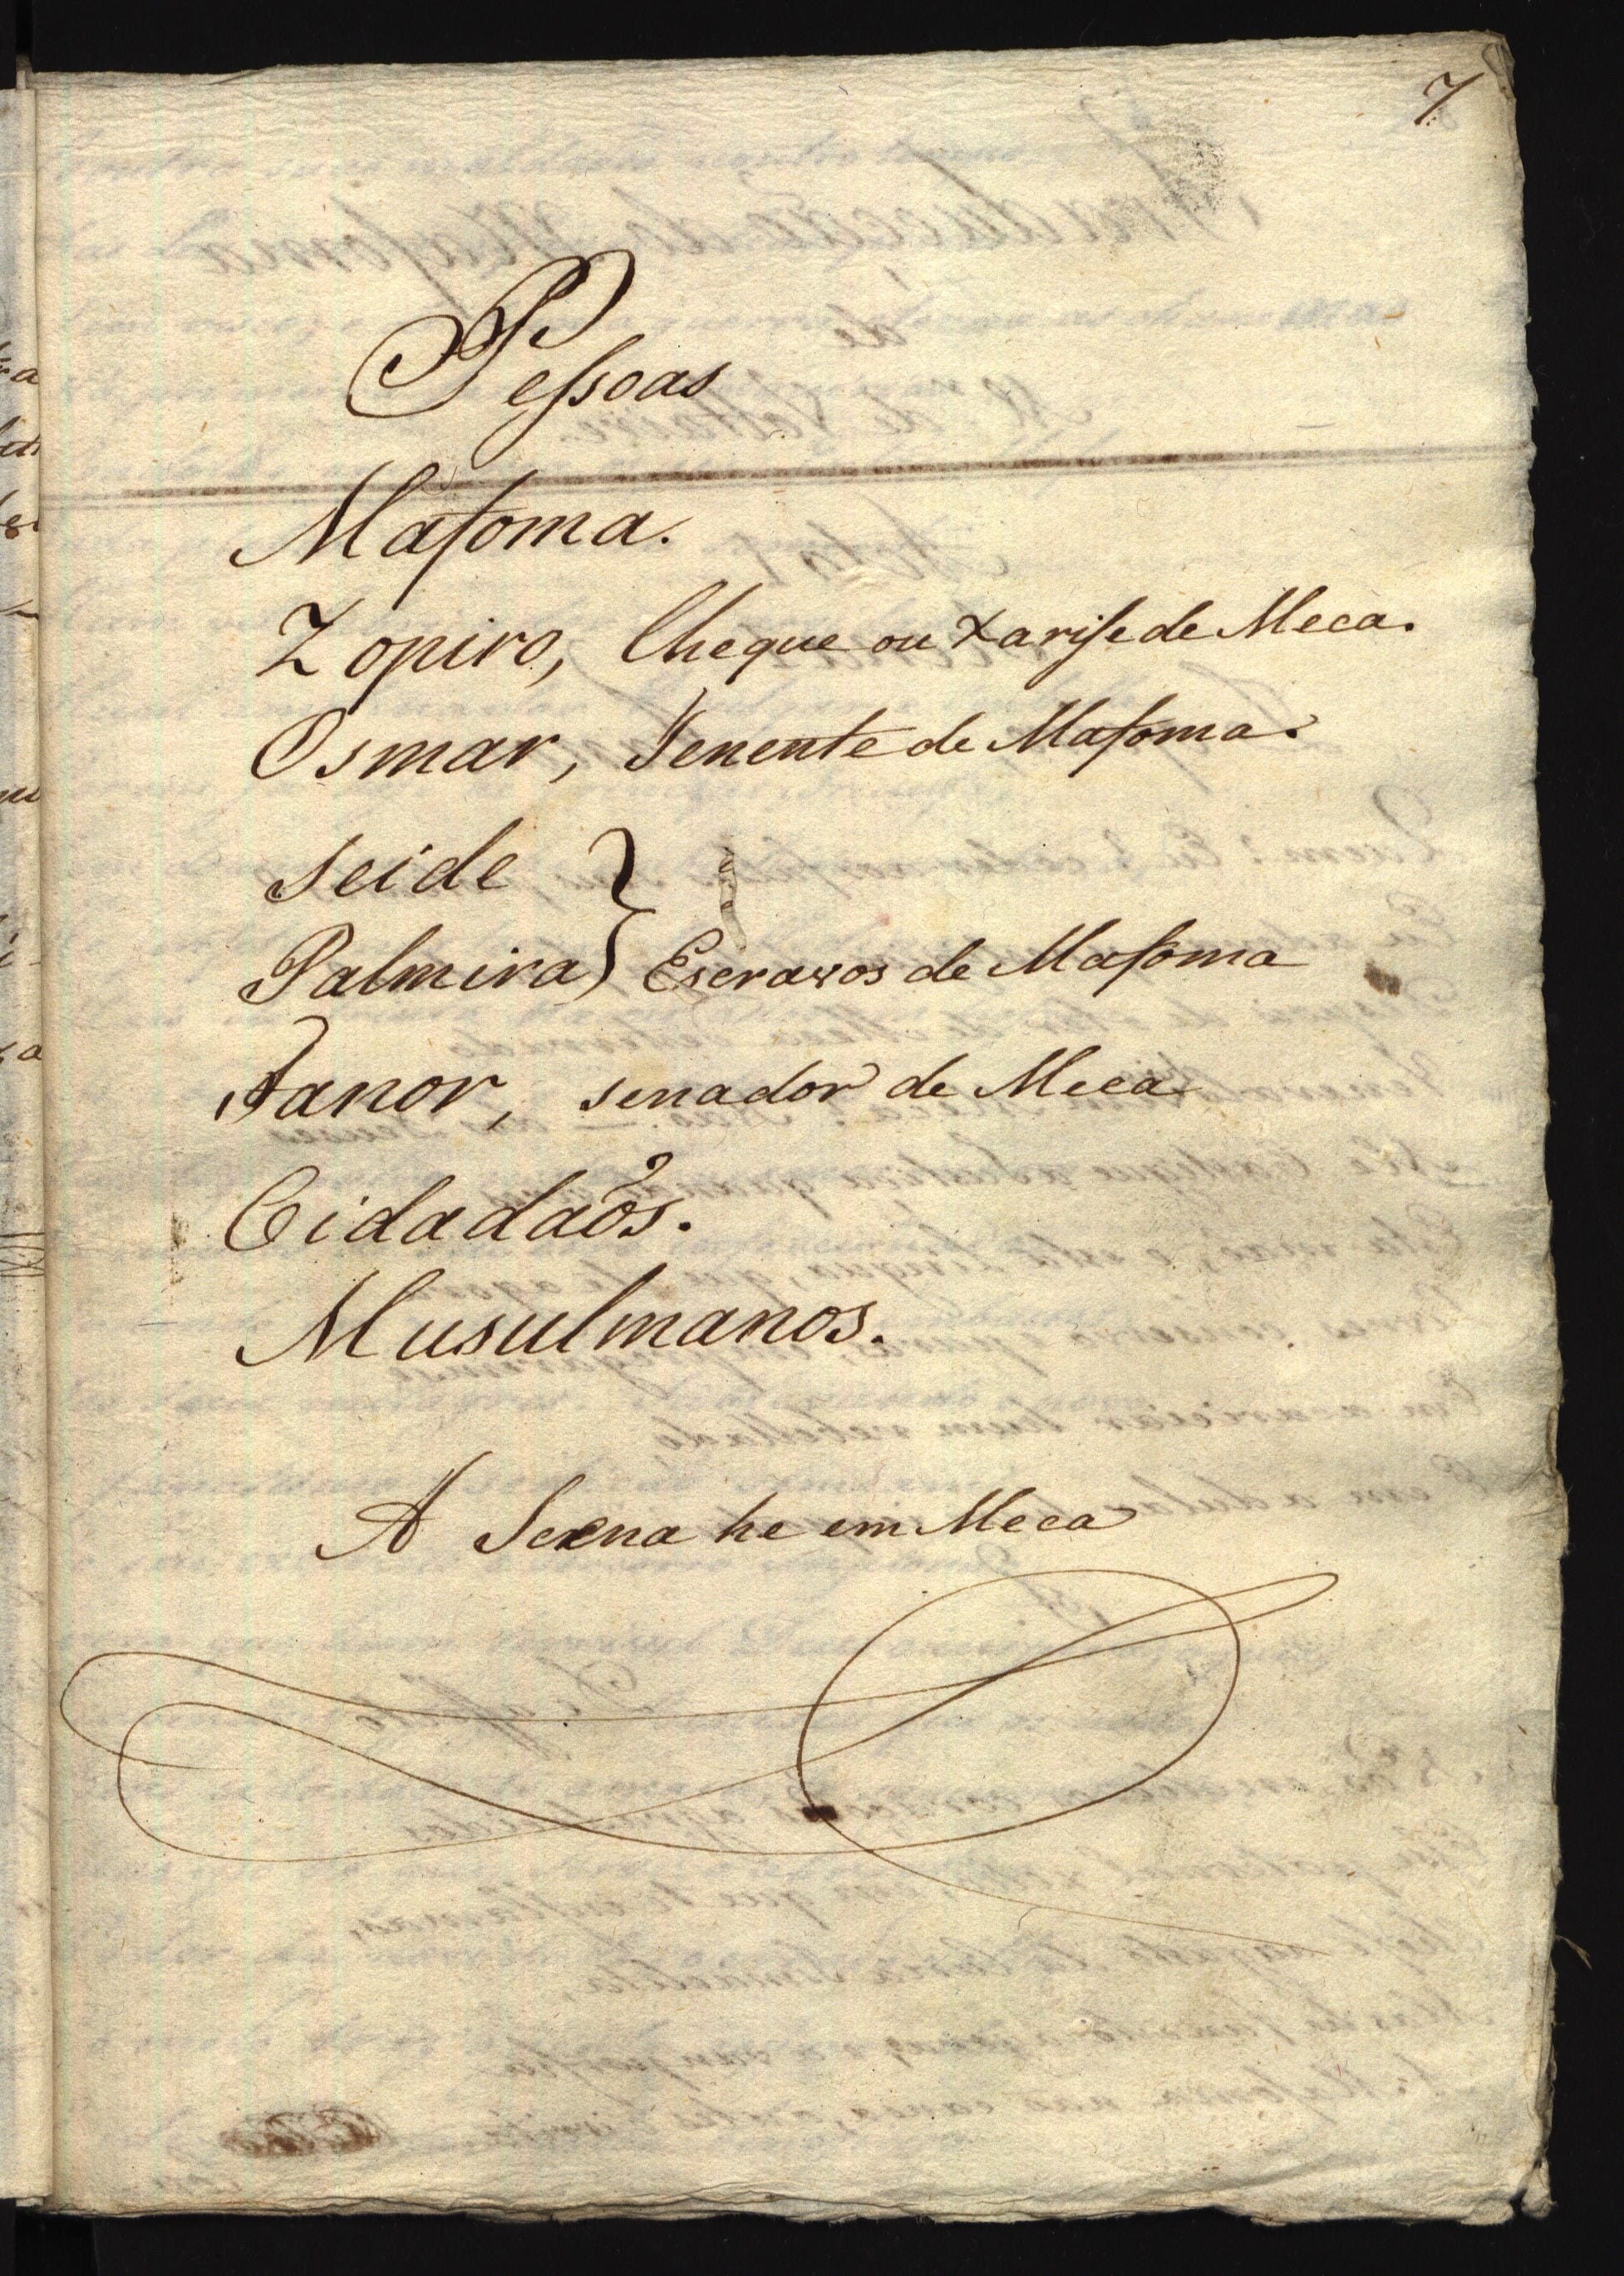 7
Pessoas
Mafoma.
Zopiro, Cheque ou Xarife de Meca.
Osmar, Tenente de Mafoma.
Seide
Palmira } Escravos de Mafoma
Fanor, senador de Meca
Cidadaõs.
Musulmanos.
A Scena he em Meca